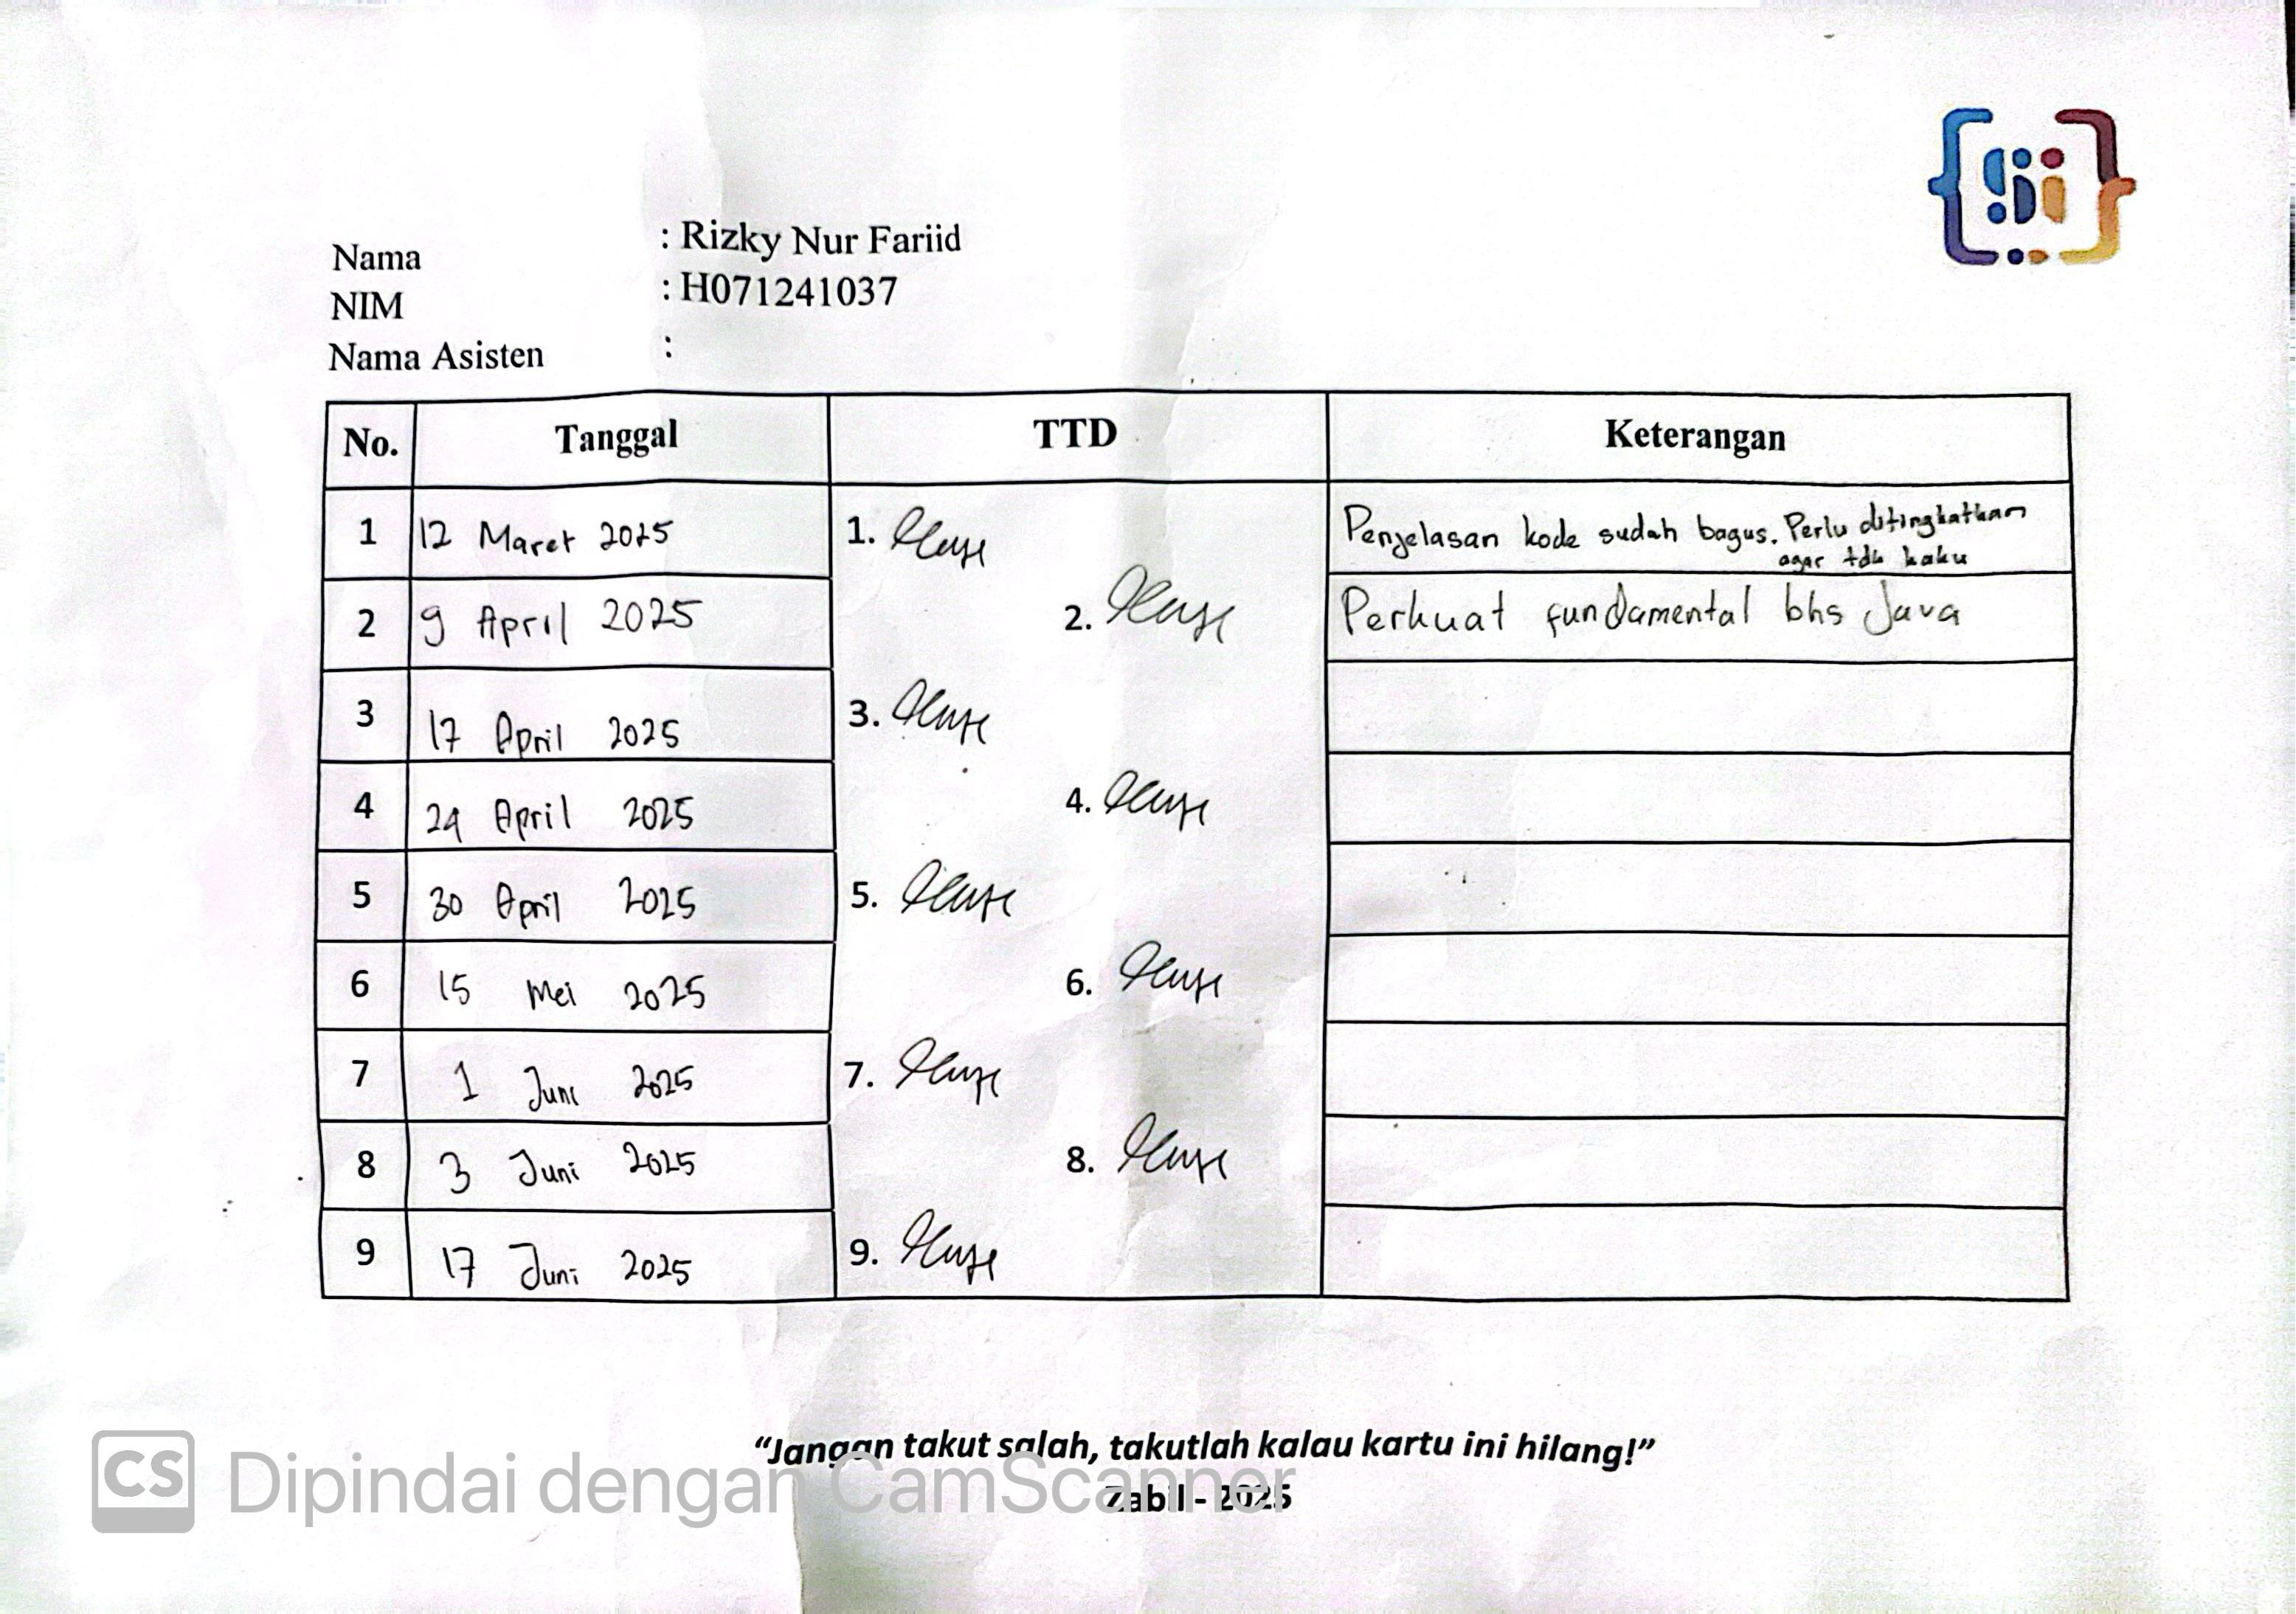 Nama : Rizky Nur Fariid
NIM : H071241037
Nama Asisten :
No. Tanggal TTD Keterangan
1 12 Maret 2025 1. Penjelasan kode sudah bagus. Perlu ditingkatkan
agar tdk kaku
2 9 April 2025 2. Perkuat fundamental bhs Java
3 17 April 2025 3.
4 24 April 2025 4.
5 30 April 2025 5.
6 15 Mei 2025 6.
7 1 Juni 2025 7.
8 3 Juni 2025 8.
9 17 Juni 2025 9.
“Jangan takut salah, takutlah kalau kartu ini hilang!”
Zabil - 2025
CS Dipindai dengan CamScanner